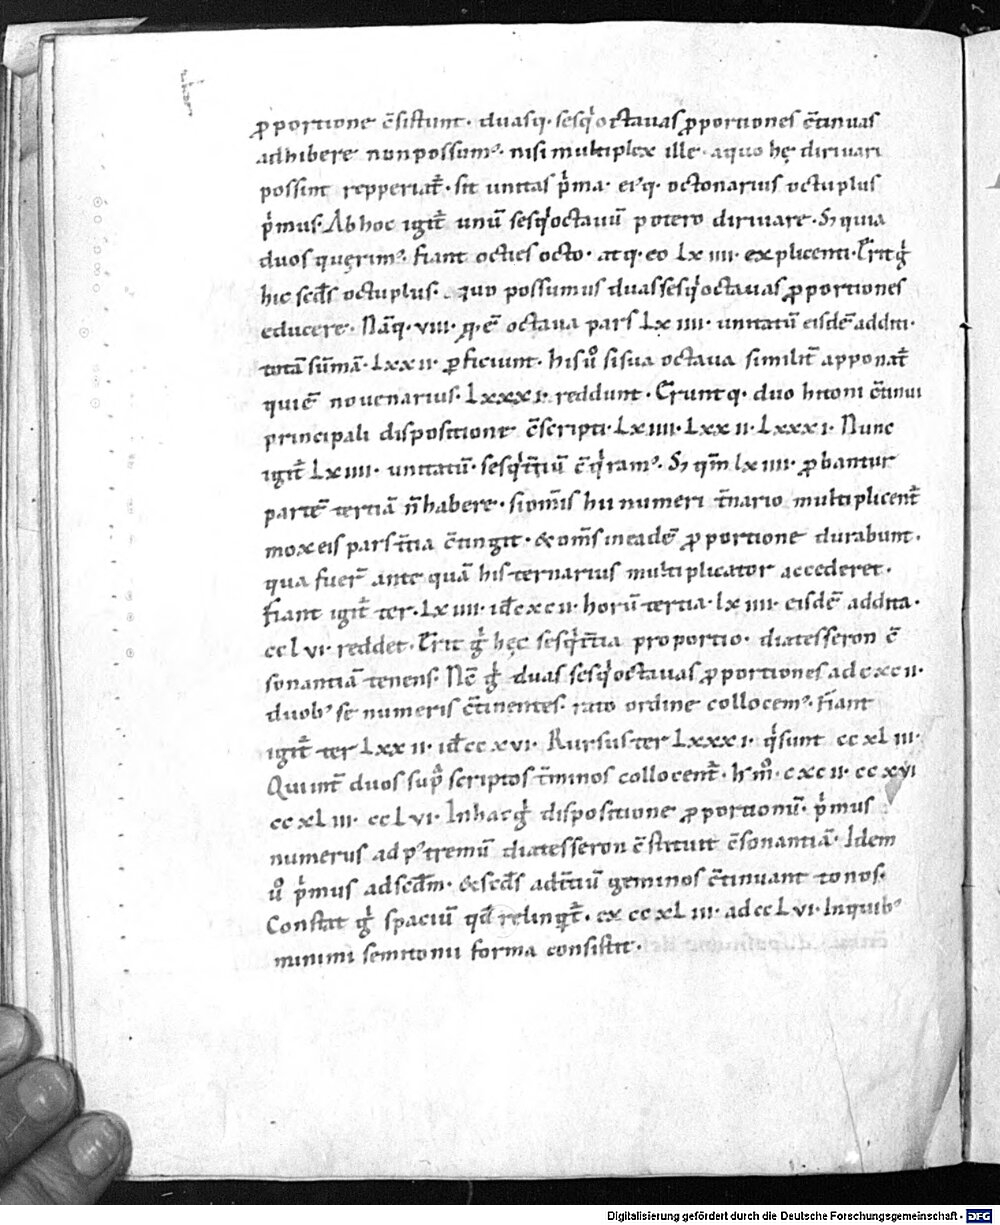 ꝓportione c̄sistunt. duasq. sesq̍octauas ꝓportiones c̄tinuas
adhibere non possum᾽. nisi multiplex ille. a quo hę diriuari
possint repperiat̄. sit unitas p̍ma. ei᾽q. octonarius octuplus
p̍mus. Ab hoc igit̄ unū sesq̍octauū potero diriuare. Sꝫ quia
duos querim᾽. fiant octies octo. atq. eo Lxiiii. explicenti. Erit g̍
hic scd̄s octuplus. quo possumus duas sesq̍octauas ꝓportiones
educere. Nāq. viii. q. ē octaua pars Lxiiii. unitatū eisdē additi.
totā sūmā. Lxxii. ꝑficiunt. his ů si sua octaua similit̄ apponat̄
qui ē nouenarius. Lxxxi. reddunt. Eruntq. duo hi toni c̄tinui
principali dispositione c̄scripti. Lxiiii. Lxxii. Lxxxi. Nunc
igit̄ Lxiiii. unitatū. sesq̍t̄iū c̄q̍ram᾽. Sꝫ qm̄ lxiiii. ꝓbantur
partē tertiā n̄ habere. si om̄s hii numeri t̄nario multiplicent̄
mox eis pars t̄tia c̄tingit. & om̄s in eadē ꝓportione durabunt.
qua fuer̄ ante quā his ternarius multiplicator accederet.
fiant igit̄ ter. Lxiiii. id̄ cxcii. horū tertia. lxiiii. eisdē addita.
cclvi. reddet. Erit g̍ hęc sesq̍t̄tia proportio. diatesseron c̄
sonantiā tenens. Nc̄ g̍ duas sesq̍octauas ꝓportiones ad cxcii.
duob᾽ se numeris c̄tinentes. rato ordine collocem᾽. fiant
igit̄ ter Lxxii. id̄ ccxvi. Rursus ter Lxxxi. q̍ sunt ccxLiii.
Qui int̄ duos sup̄ scriptos t̄minos collocent̄. h̄ m̊. cxcii. ccxvi
ccxLiii. ccLvi. In hac g̍ dispositione ꝓportionū. p̍mus
numerus ad p᾽tremū diatesseron c̄stituit c̄sonantiā. Idem
ů p̍mus ad scdm̄. & scd̄s ad t̄tiū geminos c̄tinuant tonos.
Constat g̍ spaciū qd̄ relinq̍t̄. ex ccxLiii. ad ccLvi. In quib᾽
minimi semitonii forma consistit.
Digitalisierung gefördert durch die Deutsche Forschungsgemeinschaft - DFG